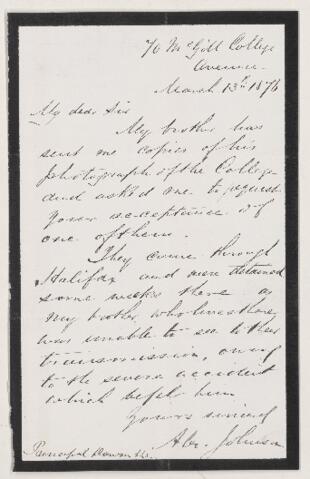 70 McGill College
Avenue
March 13th 1876
My dear Sir
My brother has
sent me copies of his
photograph of the College
and asked me to request
your acceptance of
one of them.
They came through
Halifax and were detained
some weeks there as
my brother, who lives there,
was unable to see to their
transmission, owing
to the severe accident
which befel him
Yours sincerely
Alex. Johnson
Principal Dawson